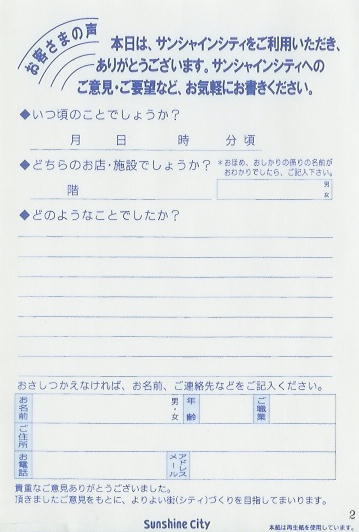 お客さまの声
本日は、サンシャインシティをご利用いただき、
ありがとうございます。サンシャインシティへの
ご意見・ご要望など、お気軽にお書きください。
◆いつ頃のことでしょうか？
月 日 時 分頃
◆どちらのお店・施設でしょうか？ *おほめ、おしかりの係りの名前が
おわかりでしたら、ご記入下さい。
階 男
女
◆どのようなことでしたか？
おさしつかえなければ、お名前、ご連絡先などをご記入ください。
お名前 男・女 年齢 ご職業
ご住所
お電話 メールアドレス
貴重なご意見ありがとうございました。
頂きましたご意見をもとに、よりよい街(シティ)づくりを目指してまいります。
2
Sunshine City 本紙は再生紙を使用しています。